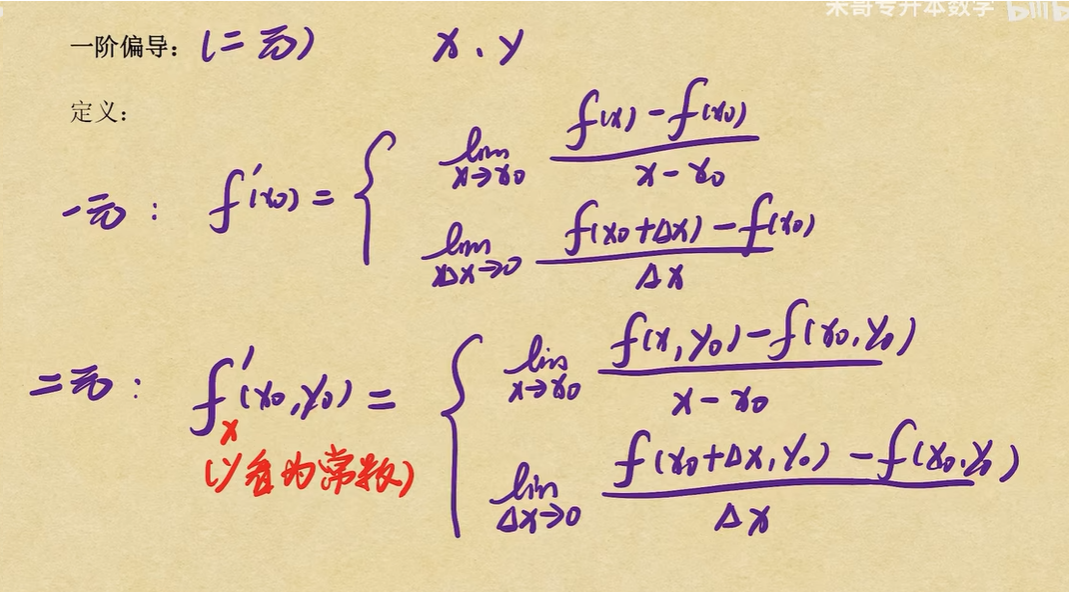 米哥专升本数学 bilib
一阶偏导：(二元) x、y
定义：
一元： f'(x0) = { lim x→x0 (f(x) - f(x0)) / (x - x0)
lim Δx→0 (f(x0+Δx) - f(x0)) / Δx
二元： f'x(x0, y0) = { lim x→x0 (f(x, y0) - f(x0, y0)) / (x - x0)
(y看为常数)
lim Δx→0 (f(x0+Δx, y0) - f(x0, y0)) / Δx